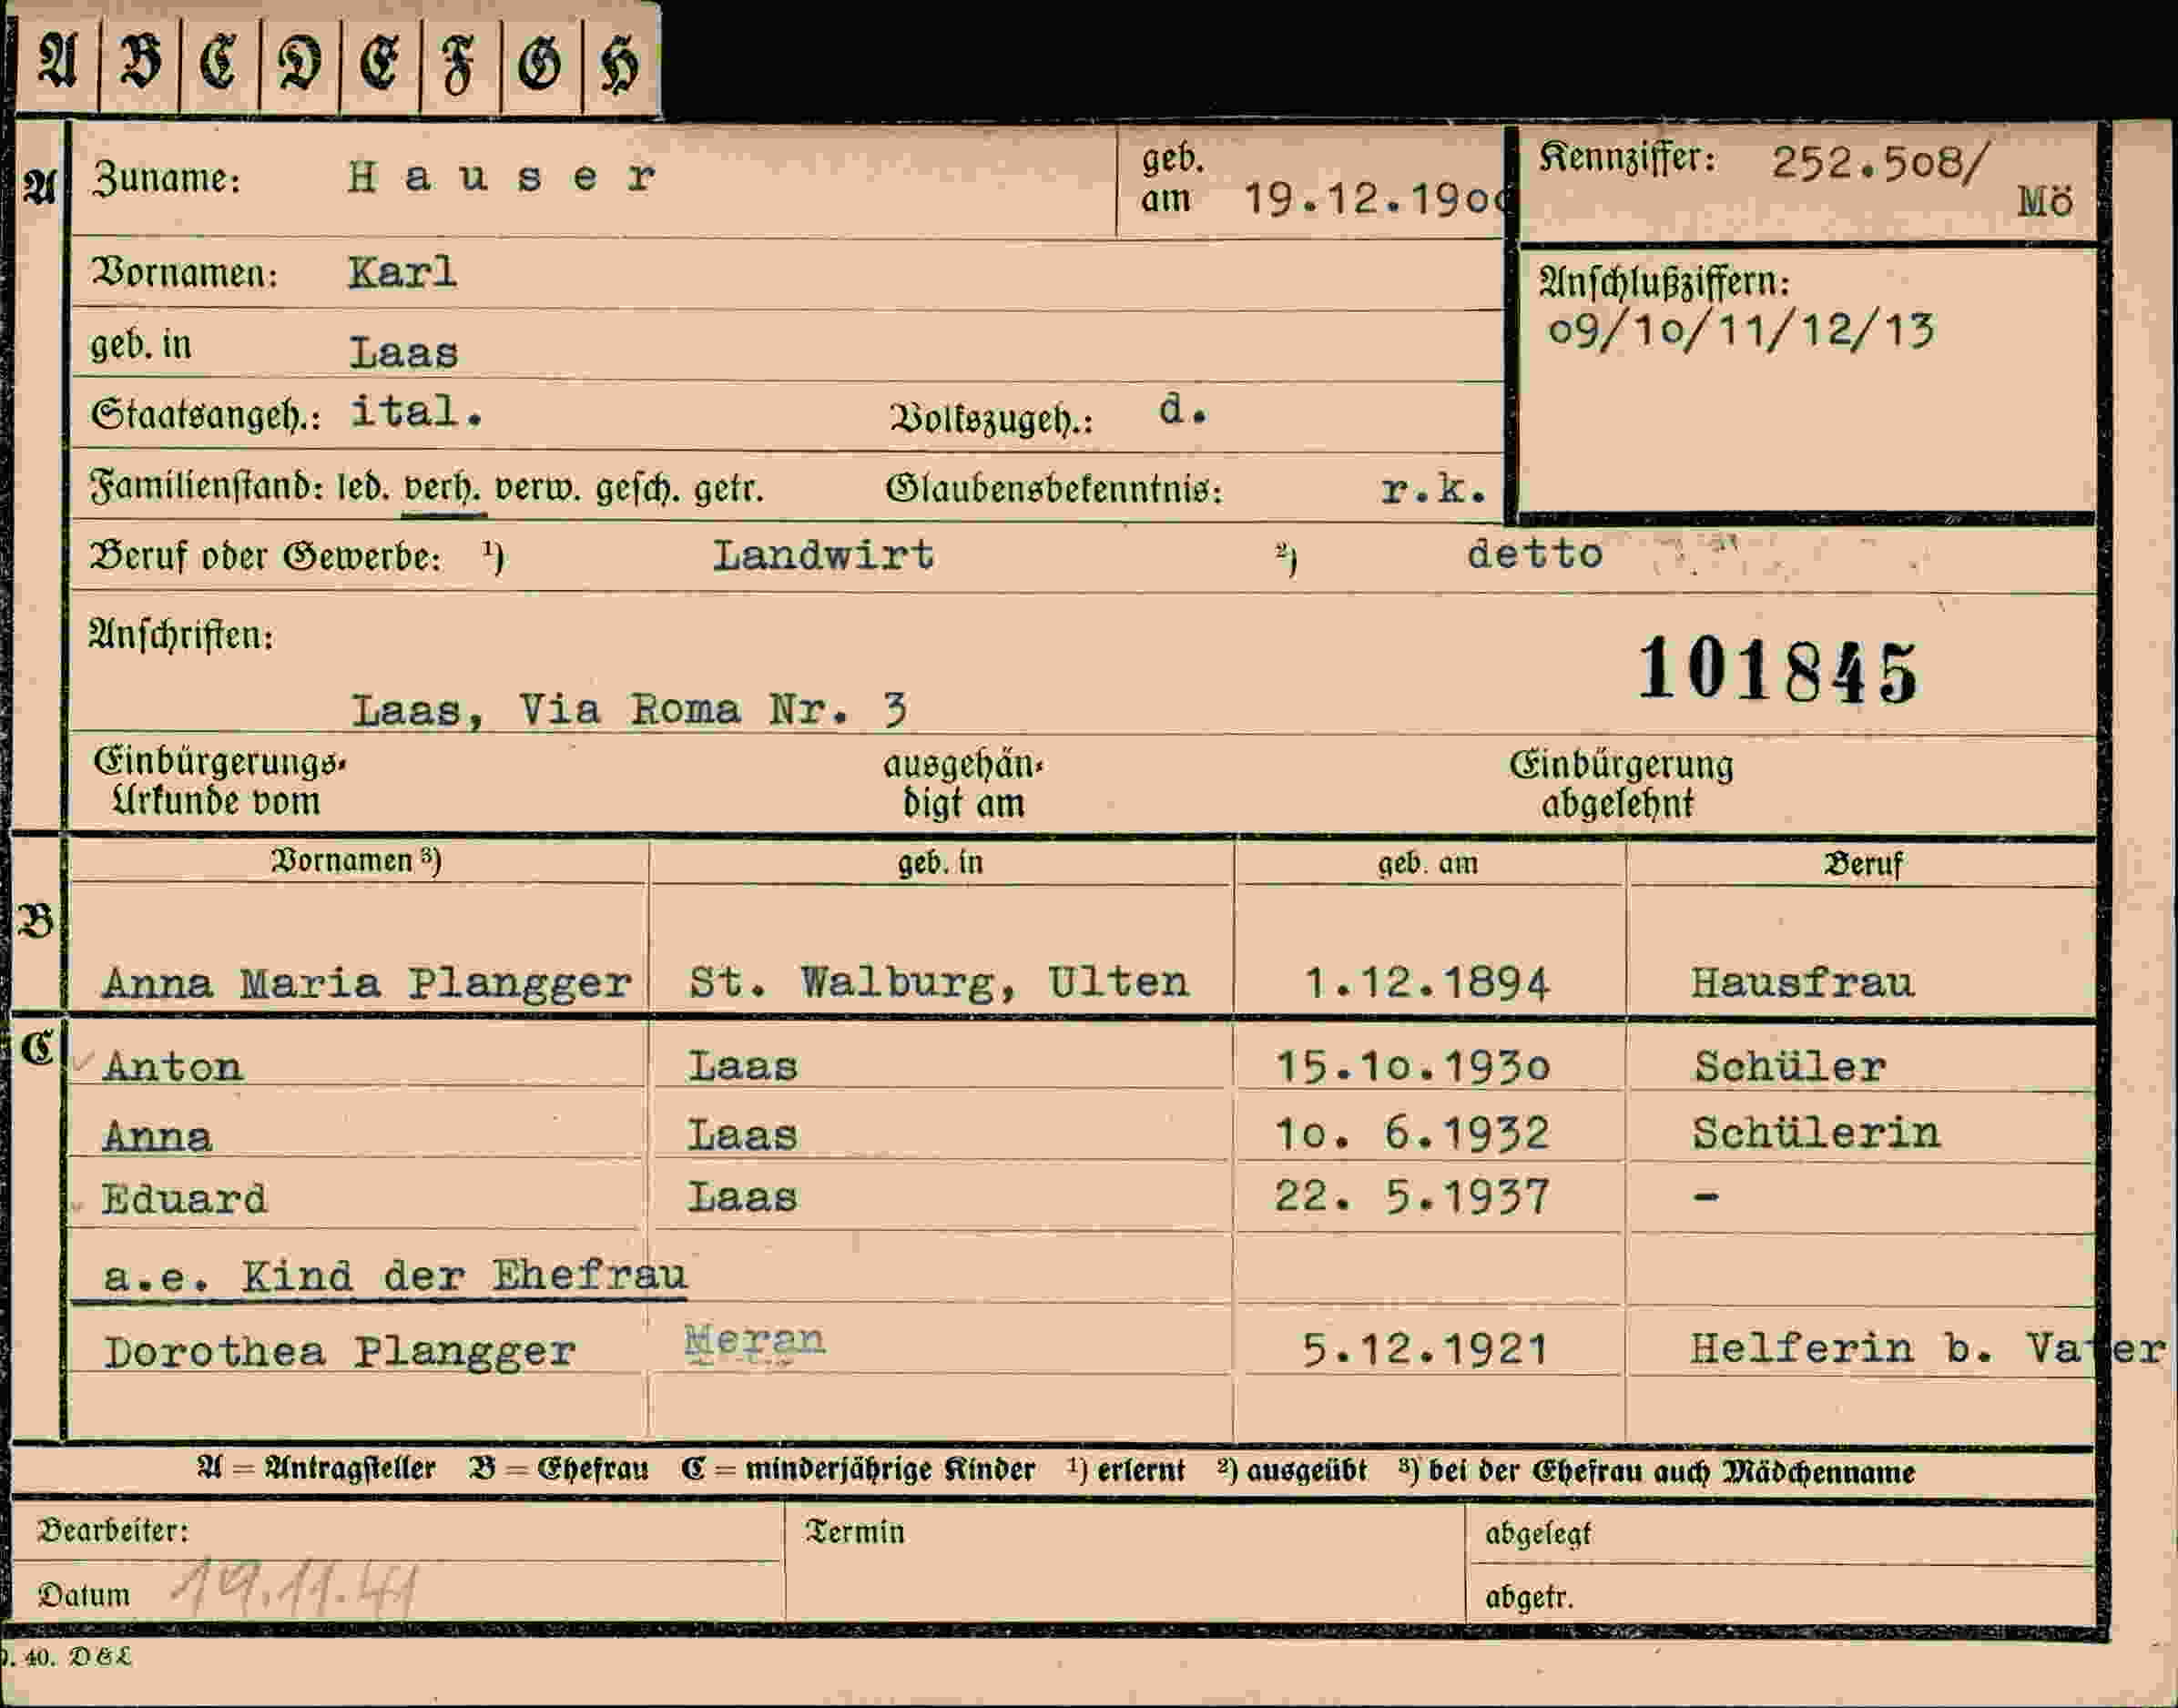 A B C D E F G H
A Zuname: Hauser geb. am 19.12.1900 Kennziffer: 252.508/ Mö
Vornamen: Karl
Anschlußziffern:
09/10/11/12/13
geb. in Laas
Staatsangeh.: ital. Volkszugeh.: d.
Familienstand: led. verh. verw. gesch. getr. Glaubensbekenntnis: r.k.
Beruf oder Gewerbe: ¹) Landwirt ²) detto
Anschriften:
101845
Laas, Via Roma Nr. 3
Einbürgerungs- ausgehän- Einbürgerung
Urkunde vom digt am abgelehnt
Vornamen ³) geb. in geb. am Beruf
B
Anna Maria Plangger St. Walburg, Ulten 1.12.1894 Hausfrau
C Anton Laas 15.10.1930 Schüler
Anna Laas 10. 6.1932 Schülerin
Eduard Laas 22. 5.1937 -
a.e. Kind der Ehefrau
Dorothea Plangger Meran 5.12.1921 Helferin b. Vater
A = Antragsteller B = Ehefrau C = minderjährige Kinder ¹) erlernt ²) ausgeübt ³) bei der Ehefrau auch Mädchenname
Bearbeiter: Termin abgelegt
Datum 19.11.41 abgetr.
. 40. D&L